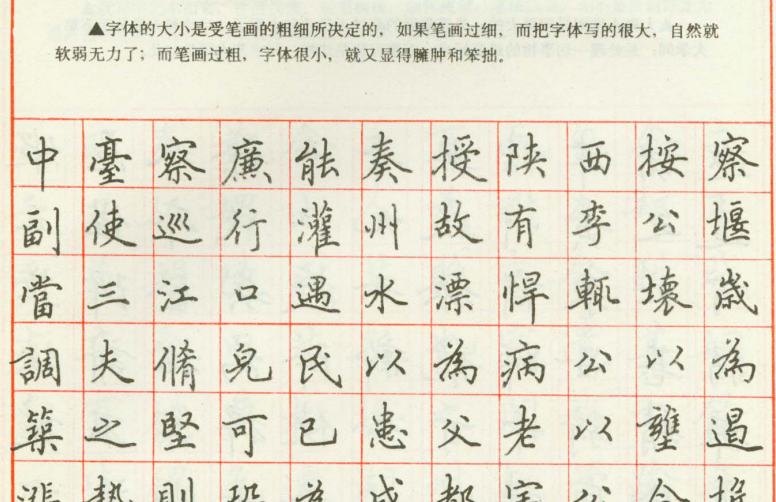 ▲字体的大小是受笔画的粗细所决定的，如果笔画过细，而把字体写的很大，自然就
软弱无力了；而笔画过粗，字体很小，就又显得臃肿和笨拙。
中臺察廉能奏授陕西按察
副使巡行灌州故有李公堰
當三江口遇水漂悍輒壞歲
調夫脩皃民以為病公以為
築之堅可已患父老以壅遏
漲勢則恐為成都害公